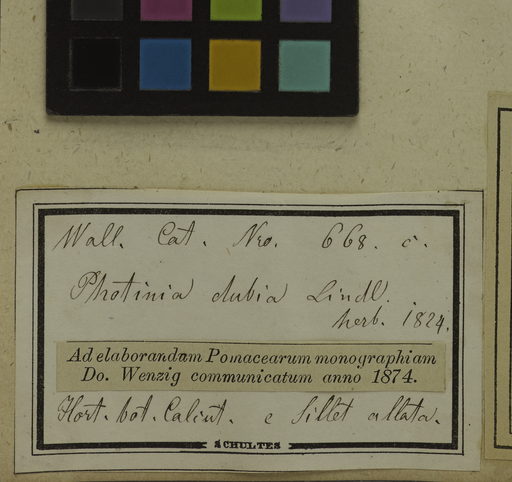 Wall. Cat. Nro. 668. c.
Photinia dubia Lindl.
herb. 1824.
Ad elaborandam Pomacearum monographiam
Do. Wenzig communicatum anno 1874.
Hort. bot. Calcut. e Sillet allata.
SCHULTES